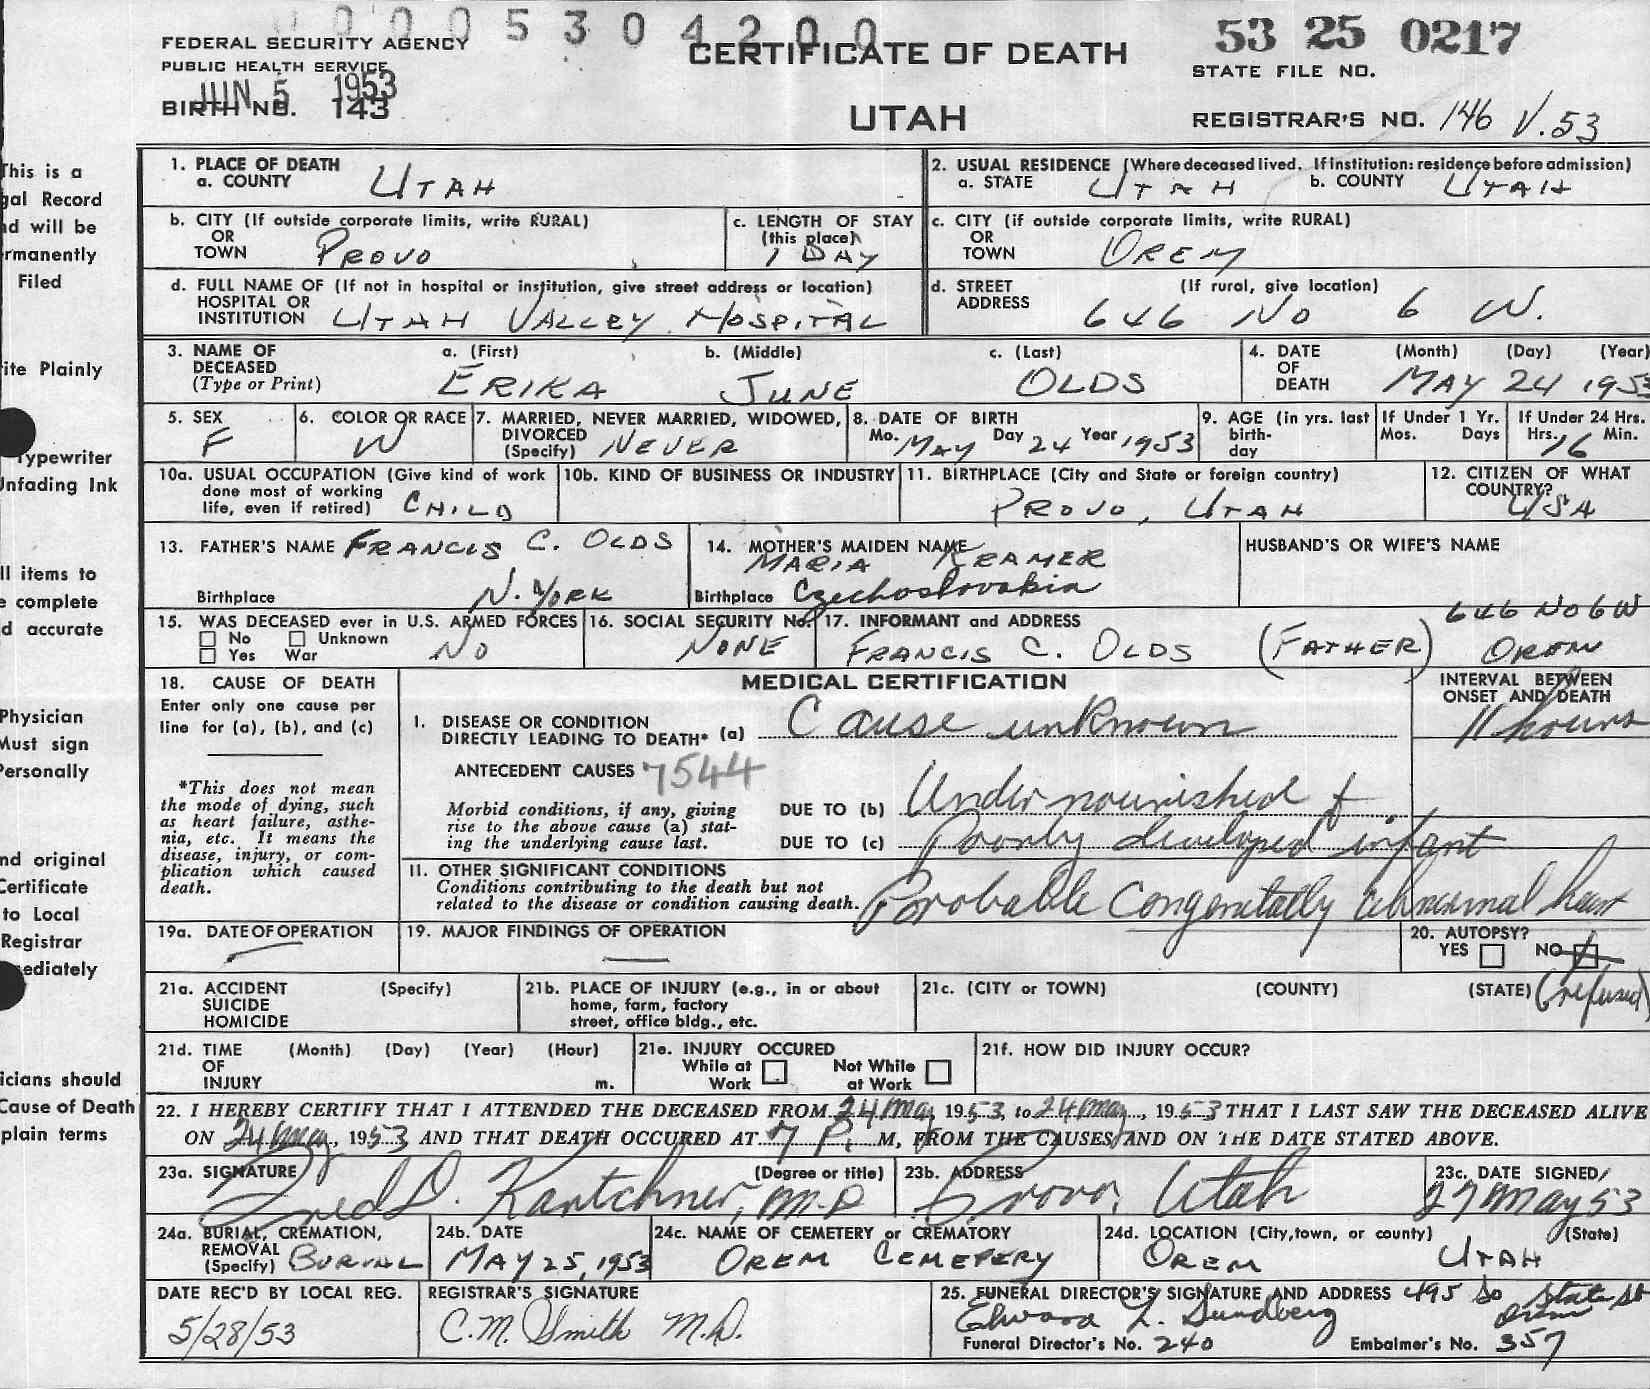 0 0 0 5 3 0 4 2 0 0
FEDERAL SECURITY AGENCY
PUBLIC HEALTH SERVICE
JUN 5 1953
BIRTH NO. 143
CERTIFICATE OF DEATH
UTAH
53 25 0217
STATE FILE NO.
REGISTRAR'S NO. 146 V.53
This is a
gal Record
nd will be
rmanently
Filed
ite Plainly
Typewriter
Unfading Ink
ll items to
e complete
d accurate
Physician
Must sign
Personally
nd original
Certificate
to Local
Registrar
mediately
icians should
Cause of Death
plain terms
1. PLACE OF DEATH
a. COUNTY UTAH
2. USUAL RESIDENCE (Where deceased lived. If institution: residence before admission)
a. STATE UTAH b. COUNTY UTAH
b. CITY (If outside corporate limits, write RURAL)
OR
TOWN PROVO
c. LENGTH OF STAY
(this place)
1 DAY
c. CITY (if outside corporate limits, write RURAL)
OR
TOWN OREM
d. FULL NAME OF (If not in hospital or institution, give street address or location)
HOSPITAL OR
INSTITUTION UTAH VALLEY HOSPITAL
d. STREET (If rural, give location)
ADDRESS 646 NO 6 W.
3. NAME OF
DECEASED
(Type or Print)
a. (First) b. (Middle) c. (Last)
ERIKA JUNE OLDS
4. DATE (Month) (Day) (Year)
OF
DEATH MAY 24 1953
5. SEX
F
6. COLOR OR RACE
W
7. MARRIED, NEVER MARRIED, WIDOWED,
DIVORCED
(Specify) NEVER
8. DATE OF BIRTH
Mo. MAY Day 24 Year 1953
9. AGE (in yrs. last
birth-
day
If Under 1 Yr.
Mos. Days
If Under 24 Hrs.
Hrs. 16 Min.
10a. USUAL OCCUPATION (Give kind of work
done most of working
life, even if retired) CHILD
10b. KIND OF BUSINESS OR INDUSTRY
11. BIRTHPLACE (City and State or foreign country)
PROVO, UTAH
12. CITIZEN OF WHAT
COUNTRY?
USA
13. FATHER'S NAME FRANCIS C. OLDS
Birthplace N. YORK
14. MOTHER'S MAIDEN NAME
MARIA KRAMER
Birthplace Czechoslovakia
HUSBAND'S OR WIFE'S NAME
15. WAS DECEASED ever in U.S. ARMED FORCES
No Unknown
Yes War NO
16. SOCIAL SECURITY No.
NONE
17. INFORMANT and ADDRESS 646 NO 6 W
FRANCIS C. OLDS (FATHER) OREM
18. CAUSE OF DEATH
Enter only one cause per
line for (a), (b), and (c)
*This does not mean
the mode of dying, such
as heart failure, asthe-
nia, etc. It means the
disease, injury, or com-
plication which caused
death.
MEDICAL CERTIFICATION
INTERVAL BETWEEN
ONSET AND DEATH
11 hours
I. DISEASE OR CONDITION
DIRECTLY LEADING TO DEATH* (a) Cause unknown
ANTECEDENT CAUSES 7544
Morbid conditions, if any, giving
rise to the above cause (a) stat-
ing the underlying cause last.
DUE TO (b) Under nourished &
DUE TO (c) Poorly developed infant
11. OTHER SIGNIFICANT CONDITIONS
Conditions contributing to the death but not
related to the disease or condition causing death. Probable congenitally abnormal heart
19a. DATE OF OPERATION
19. MAJOR FINDINGS OF OPERATION
20. AUTOPSY?
YES NO
(refused)
21a. ACCIDENT (Specify)
SUICIDE
HOMICIDE
21b. PLACE OF INJURY (e.g., in or about
home, farm, factory
street, office bldg., etc.
21c. (CITY or TOWN) (COUNTY) (STATE)
21d. TIME (Month) (Day) (Year) (Hour)
OF
INJURY m.
21e. INJURY OCCURED
While at Work Not While at Work
21f. HOW DID INJURY OCCUR?
22. I HEREBY CERTIFY THAT I ATTENDED THE DECEASED FROM 24 May, 1953, to 24 May, 1953 THAT I LAST SAW THE DECEASED ALIVE
ON 24 May, 1953 AND THAT DEATH OCCURED AT 7 P. M, FROM THE CAUSES AND ON THE DATE STATED ABOVE.
23a. SIGNATURE (Degree or title)
Fred D. Kartchner, M.D
23b. ADDRESS
Provo, Utah
23c. DATE SIGNED
27 May 53
24a. BURIAL, CREMATION,
REMOVAL
(Specify) BURIAL
24b. DATE
MAY 25, 1953
24c. NAME OF CEMETERY or CREMATORY
OREM CEMETERY
24d. LOCATION (City, town, or county) (State)
OREM UTAH
DATE REC'D BY LOCAL REG.
5/28/53
REGISTRAR'S SIGNATURE
C.M. Smith M.D.
25. FUNERAL DIRECTOR'S SIGNATURE AND ADDRESS 495 So State St
Elwood L. Sundberg Orem
Funeral Director's No. 240 Embalmer's No. 357